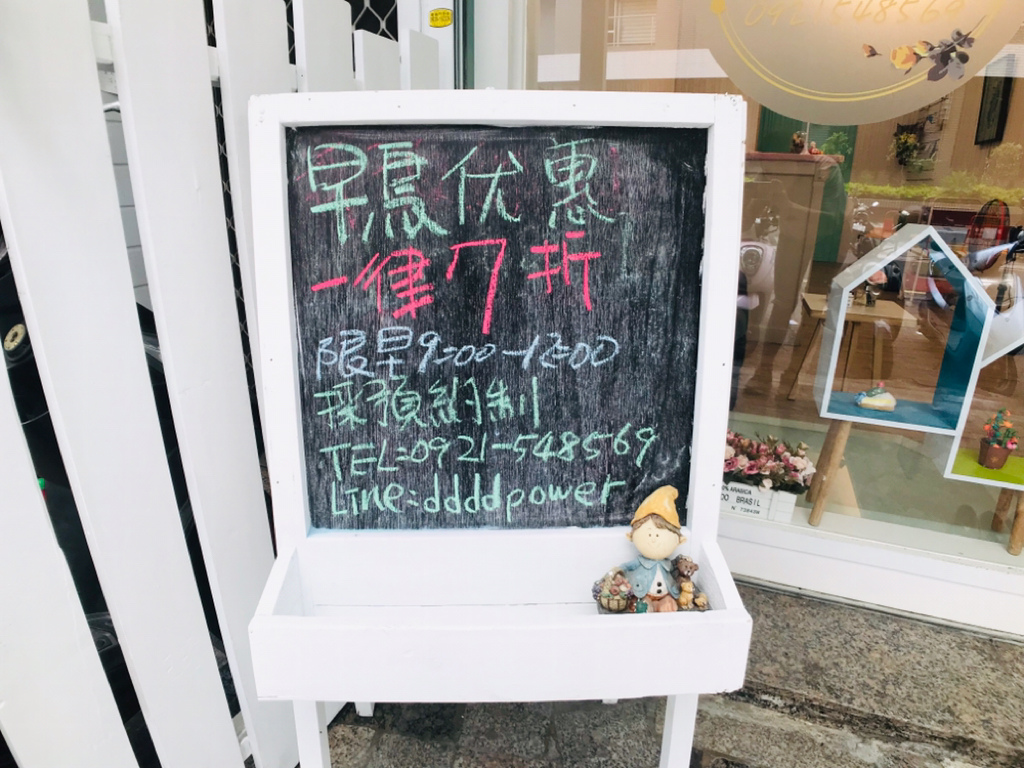 0921548569
早鳥优惠
一律7折
限早9:00-12:00
採預約制
TEL:0921-548569
Line:ddddpower
% ARABICA
DO BRASIL